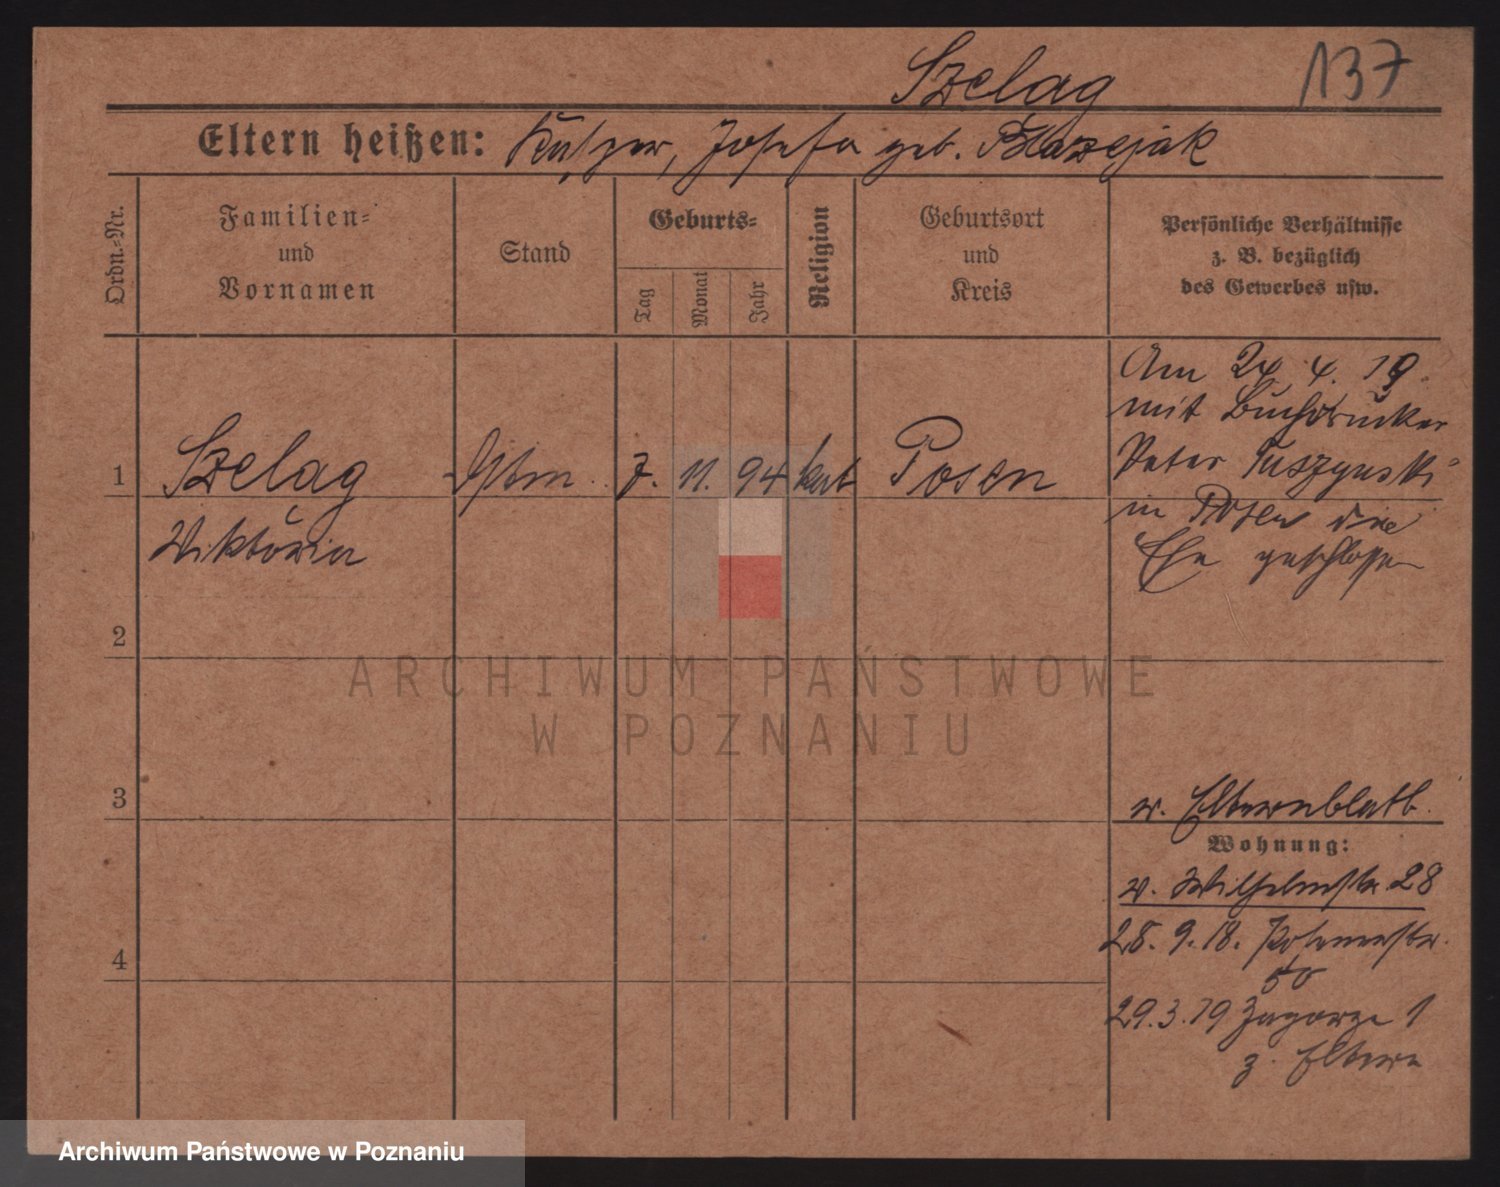 Szelag
137
Eltern heißen: Kasper, Josefa geb. Blazejak
Ordn.=Nr.
Familien=
und
Vornamen
Stand
Geburts=
Tag
Monat
Jahr
Religion
Geburtsort
und
Kreis
Persönliche Verhältnisse
z. B. bezüglich
des Gewerbes usw.
1
Szelag
7. 11. 94 kat Posen
Viktoria
Am 24. 4. 19
mit Buchdrucker
Peter Tuszynski
in Posen die
Ehe geschlossen
2
3
4
v. Elternblatt
Wohnung:
v. Wilhelmstr. 28
28. 9. 18. Posenerstr.
29. 3. 19 Zagorze 1
z. Eltern
ARCHIWUM PAŃSTWOWE
W POZNANIU
Archiwum Państwowe w Poznaniu